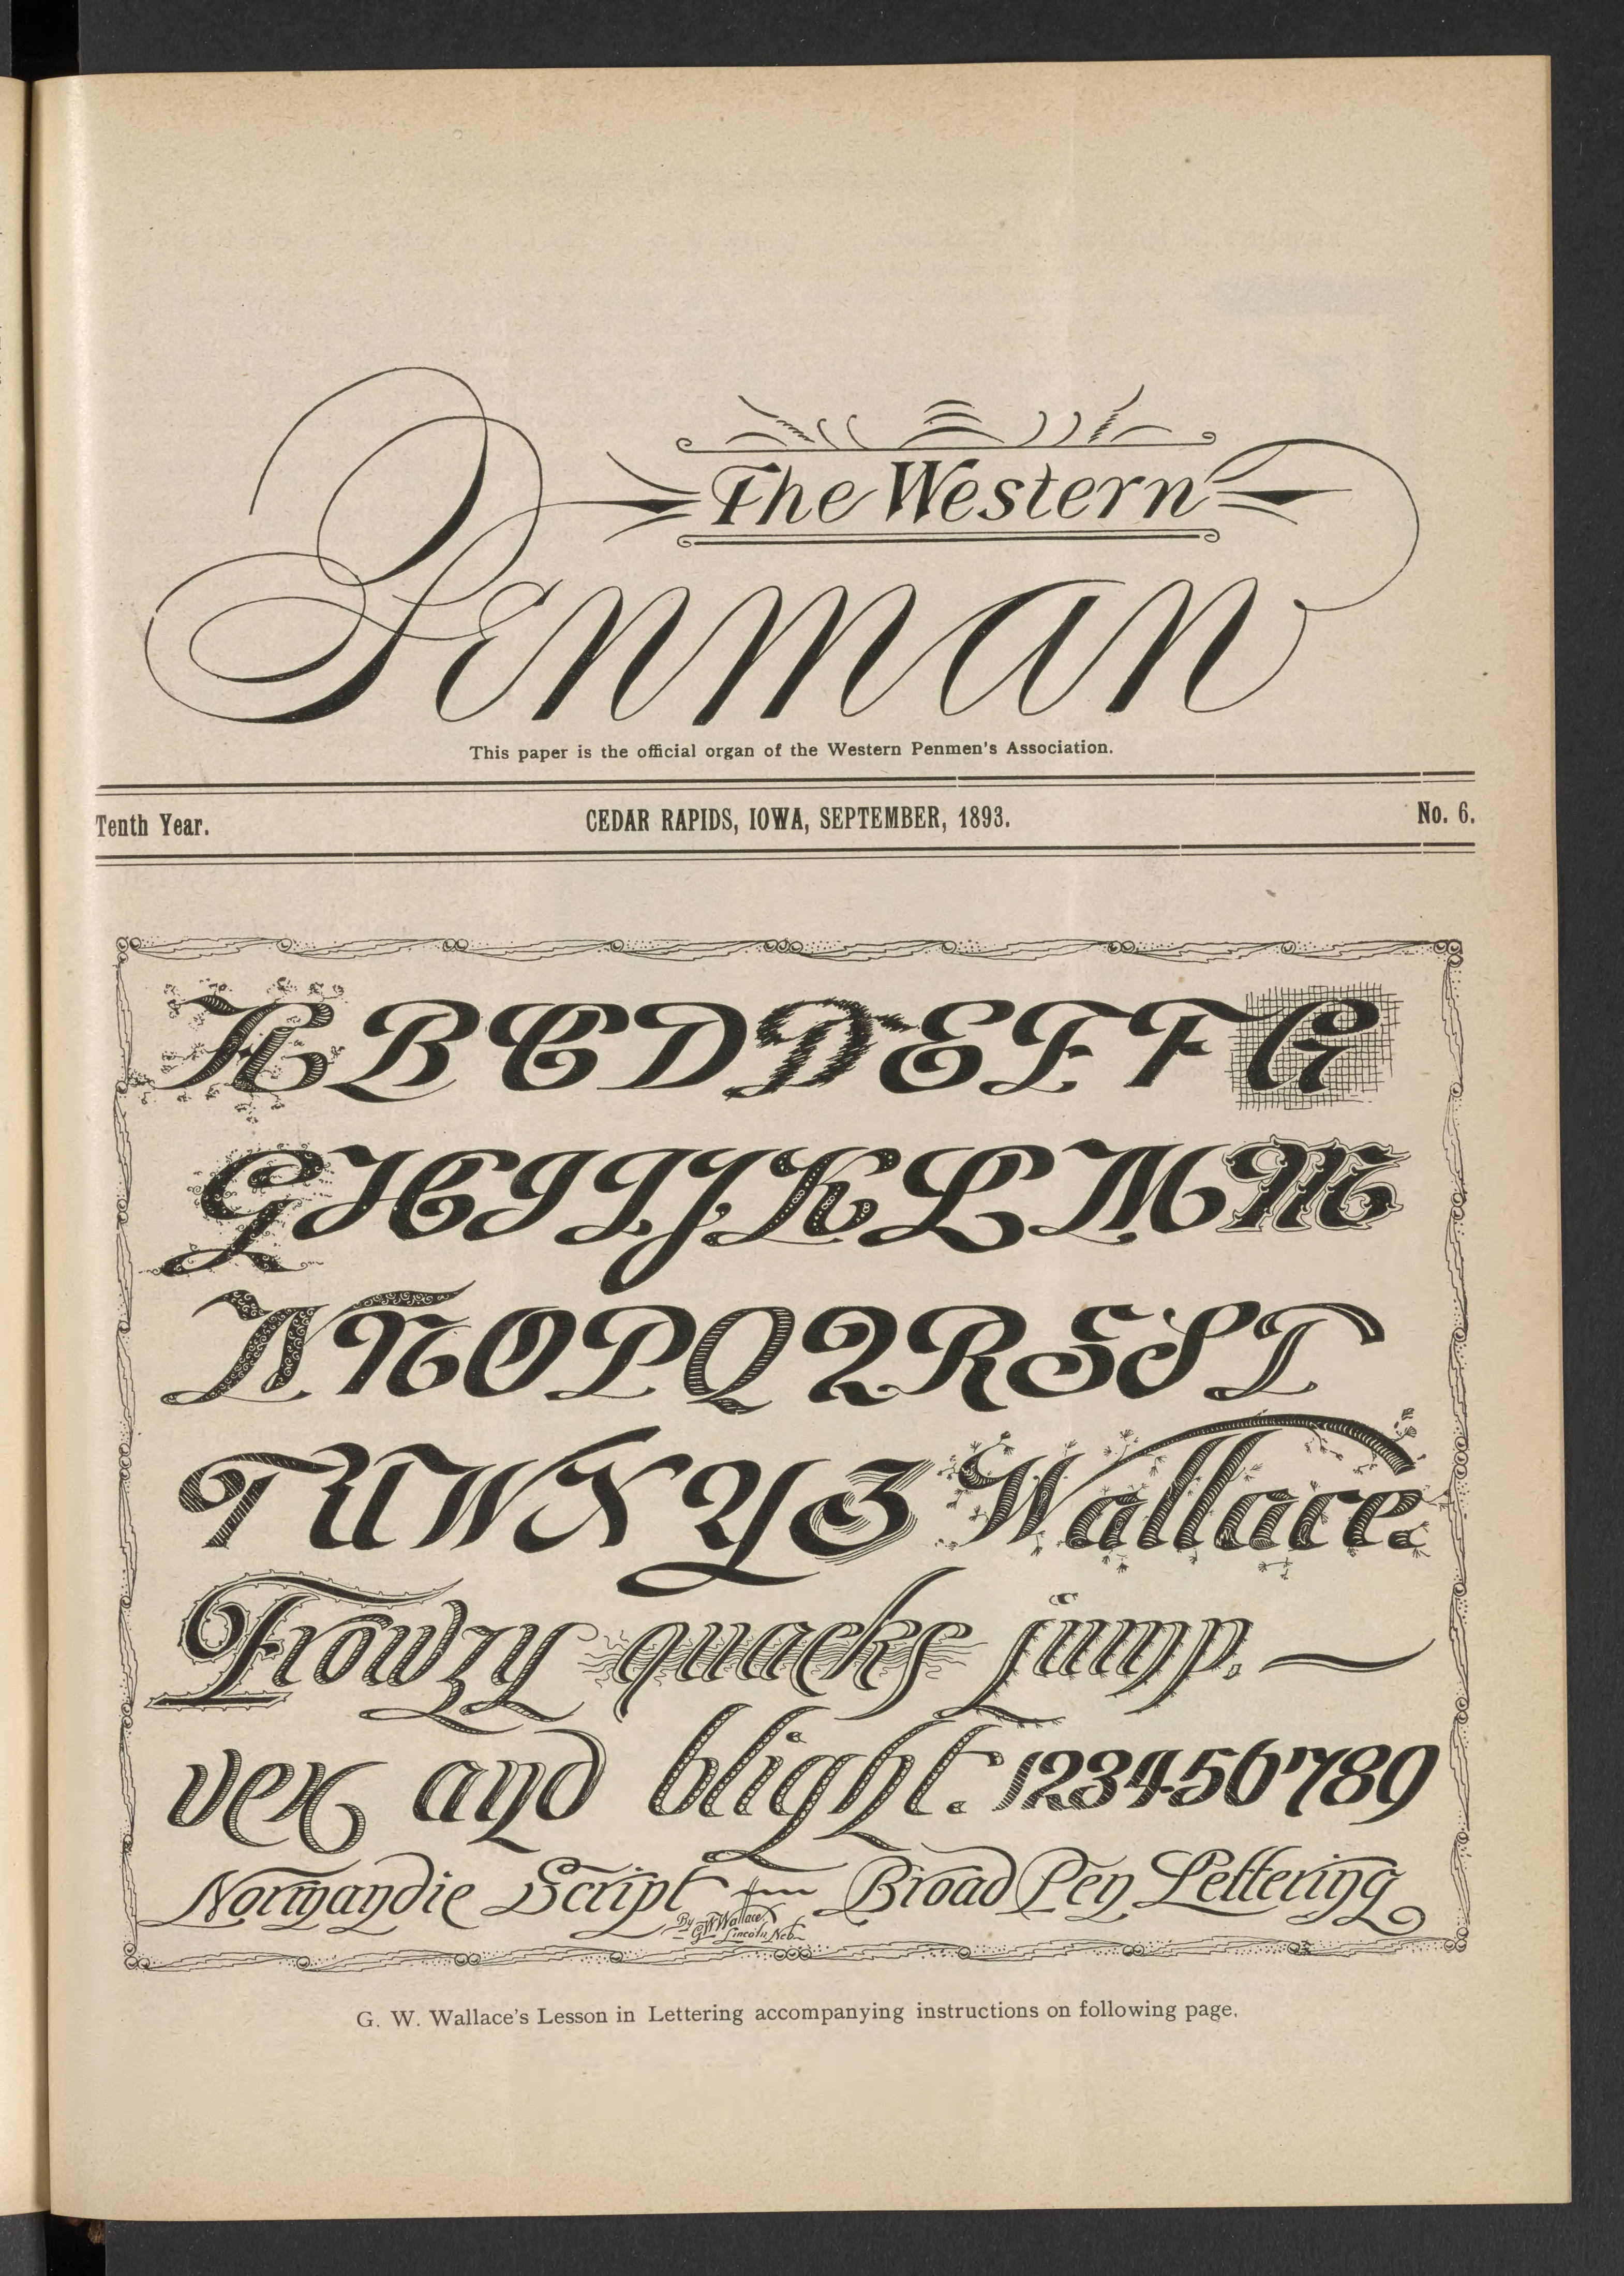 The Western
Penman
This paper is the official organ of the Western Penmen's Association.
Tenth Year. CEDAR RAPIDS, IOWA, SEPTEMBER, 1893. No. 6.
A B C D D E E F G
G H I I J K L M M
N N O P Q Q R S S T
T U W X Y Z Wallace.
Frowzy quacks jump.
vex and blight. 123456789
Normandie Script for Broad Pen Lettering
By
G W Wallace
Lincoln, Neb
G. W. Wallace's Lesson in Lettering accompanying instructions on following page.